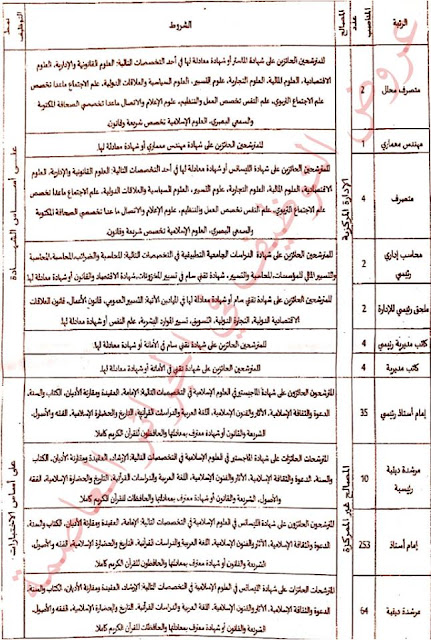 الرتبة
عدد المناصب
المصالح
الشروط
نمط التوظيف
متصرف محلل
2
للمترشحين الحائزين على شهادة الماستر أو شهادة معادلة لها في أحد التخصصات التالية: العلوم القانونية والإدارية، العلوم
الاقتصادية، العلوم المالية، العلوم التجارية، علوم التسيير، العلوم السياسية والعلاقات الدولية، علم الاجتماع ماعدا تخصص
علم الاجتماع التربوي، علم النفس تخصص العمل والتنظيم، علوم الإعلام والاتصال ماعدا تخصصي الصحافة المكتوبة
والسمعي البصري، العلوم الإسلامية تخصص شريعة وقانون.
مهندس معماري
1
للمترشحين الحائزين على شهادة مهندس معماري أو شهادة معادلة لها.
متصرف
4
الإدارة المركزية
للمترشحين الحائزين على شهادة الليسانس أو شهادة معادلة لها في أحد التخصصات التالية: العلوم القانونية والإدارية، العلوم
الاقتصادية، العلوم المالية، العلوم التجارية، علوم التسيير، العلوم السياسية والعلاقات الدولية، علم الاجتماع ماعدا تخصص
علم الاجتماع التربوي، علم النفس تخصص العمل والتنظيم، علوم الإعلام والاتصال ما عدا تخصصي الصحافة المكتوبة
والسمعي البصري، العلوم الإسلامية تخصص شريعة وقانون.
على أساس الشهادة
محاسب إداري رئيسي
2
للمترشحين الحائزين على شهادة الدراسات الجامعية التطبيقية في التخصصات التالية: المحاسبة والضرائب، المحاسبة، المحاسبة
والتسيير المالي للمؤسسات، المحاسبة والتسيير، شهادة تقني سام في تسيير المخزونات، شهادة الاقتصاد والقانون أو شهادة معادلة لها.
ملحق رئيسي للإدارة
2
للمترشحين الحائزين على شهادة تقني سام أو شهادة معادلة لها في الميادين الآتية: التسيير العمومي، قانون الأعمال، قانون العلاقات
الاقتصادية الدولية، التجارة الدولية، التسويق، تسيير الموارد البشرية، علم النفس أو شهادة معادلة لها.
كاتب مديرية رئيسي
4
للمترشحين الحائزين على شهادة تقني سام في الأمانة أو شهادة معادلة لها.
كاتب مديرية
4
للمترشحين الحائزين على شهادة تقني في الأمانة أو شهادة معادلة لها.
إمام أستاذ رئيسي
35
المترشحون الحائزون على شهادة الماجستير في العلوم الإسلامية في التخصصات التالية: الإمامة، العقيدة ومقارنة الأديان، الكتاب والسنة،
الدعوة والثقافة الإسلامية، الآثار والفنون الإسلامية، اللغة العربية والدراسات القرآنية، التاريخ والحضارة الإسلامية، الفقه والأصول،
الشريعة والقانون أو شهادة معترف بمعادلتها والحافظون للقرآن الكريم كاملا.
مرشدة دينية رئيسية
10
المصالح غير الممركزة
المترشحات الحائزات على شهادة الماجستير في العلوم الإسلامية في التخصصات التالية: الإرشاد، العقيدة ومقارنة الأديان، الكتاب
والسنة، الدعوة والثقافة الإسلامية، الآثار والفنون الإسلامية، اللغة العربية والدراسات القرآنية، التاريخ والحضارة الإسلامية، الفقه
والأصول، الشريعة والقانون أو شهادة معترف بمعادلتها والحافظات للقرآن الكريم كاملا.
على أساس الاختبارات
إمام أستاذ
253
المترشحون الحائزون على شهادة الليسانس في العلوم الإسلامية في التخصصات التالية: الإمامة، العقيدة ومقارنة الأديان، الكتاب والسنة،
الدعوة والثقافة الإسلامية، الآثار والفنون الإسلامية، اللغة العربية والدراسات القرآنية، التاريخ والحضارة الإسلامية، الفقه والأصول،
الشريعة والقانون أو شهادة معترف بمعادلتها والحافظون للقرآن الكريم كاملا.
مرشدة دينية
64
المترشحات الحائزات على شهادة الليسانس في العلوم الإسلامية في التخصصات التالية: الإرشاد، العقيدة ومقارنة الأديان، الكتاب والسنة،
الدعوة والثقافة الإسلامية، الآثار والفنون الإسلامية، اللغة العربية والدراسات القرآنية، التاريخ والحضارة الإسلامية، الفقه والأصول،
الشريعة والقانون أو شهادة معترف بمعادلتها والحافظات للقرآن الكريم كاملا.
عروض التوظيف في الجزائر العاصمة